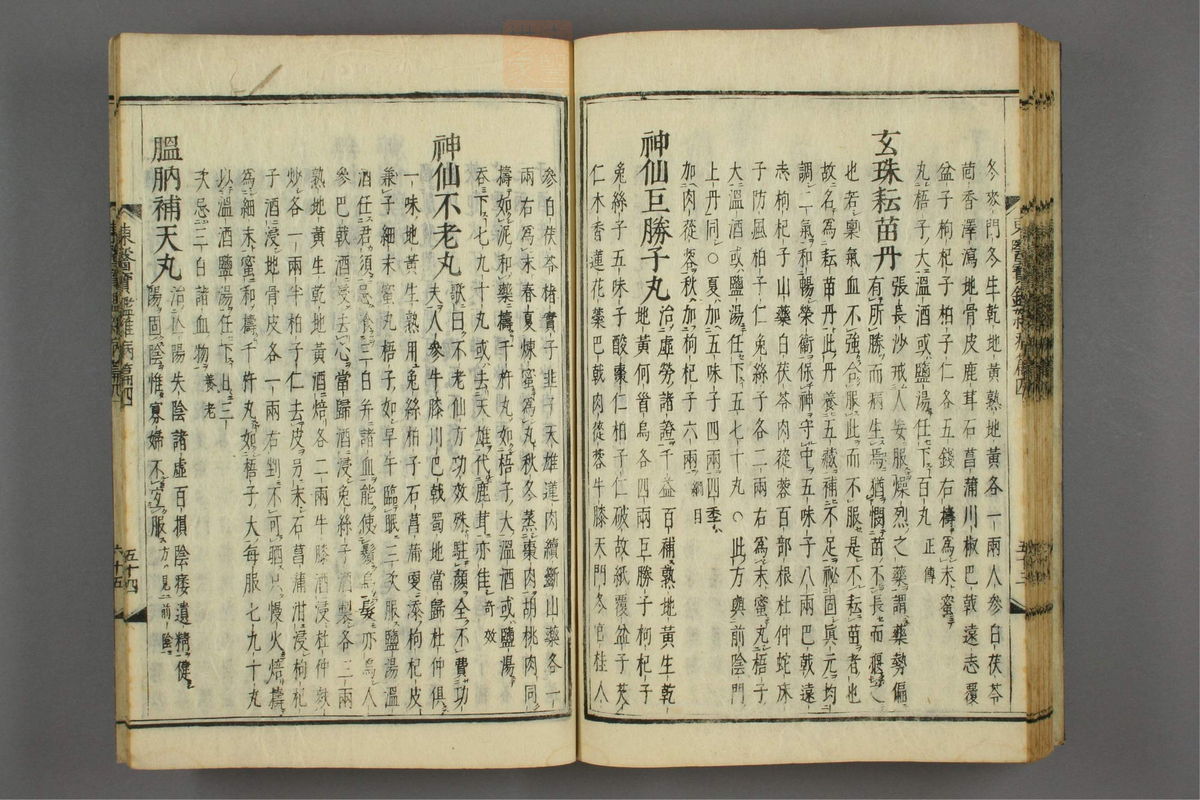 冬麥門冬生乾地黃熟地黃各一兩人參白茯苓
茴香澤瀉地骨皮鹿茸石菖蒲川椒巴戟遠志覆
盆子枸杞子柏子仁各五錢右擣為末蜜
丸梧子大溫酒或鹽湯任下百丸 正傳
玄珠耘苗丹 張長沙戒人妄服燥烈之藥謂藥勢偏
有所勝而病生焉猶憫苗不長而揠之
也若稟氣血不強合服此而不服是不耘苗者也
故名為耘苗丹此丹養五藏補不足祕固眞元均
調二氣和暢榮衛保神守中五味子八兩巴戟遠
志枸杞子山藥白茯苓肉蓯蓉百部根杜仲蛇床
子防風柏子仁兔絲子各二兩右為末蜜丸梧子
大溫酒或鹽湯任下五七十丸○此方與前陰門
上丹同○夏加五味子四兩四季
加肉蓯蓉秋加枸杞子六兩 綱目
神仙巨勝子丸 治虛勞諸證千益百補熟地黃生乾
地黃何首烏各四兩巨勝子枸杞子
兔絲子五味子酸棗仁柏子仁破故紙覆盆子芡
仁木香蓮花蘂巴戟肉蓯蓉牛膝天門冬官桂人
參白茯苓楮實子韭子天雄蓮肉續斷山藥各一
兩右為末春夏煉蜜為丸秋冬蒸棗肉胡桃肉同
擣如泥和藥擣千杵丸如梧子大溫酒或鹽湯
吞下七九十丸或去天雄代鹿茸亦佳 奇效
神仙不老丸 歌曰不老仙方功效殊駐顏全不費功
夫人參牛膝川巴戟蜀地當歸杜仲俱
一味地黃生熟用兔絲柏子石菖蒲更添枸杞皮
兼子細末蜜丸梧子如早午臨眠三次服鹽湯溫
酒任君須忌食三白幷諸血能使鬚烏髮亦烏人
參巴戟酒浸去心當歸酒浸兔絲子酒製各二兩
熟地黃生乾地黃酒焙各二兩牛膝酒浸杜仲麩
炒各一兩半柏子仁去皮另末石菖蒲泔浸枸杞
子酒浸地骨皮各一兩右剉不可晒只慢火焙擣
為細末蜜和擣千杵丸如梧子大每服七九十丸
以溫酒鹽湯任下日三
次忌三白諸血物 養老
膃肭補天丸 治亾陽失陰諸虛百損陰痿遺精健
陽固陰惟寡婦不宜服 方見前陰
東醫寶鑑雜病篇四
五十三
五十四
六十五